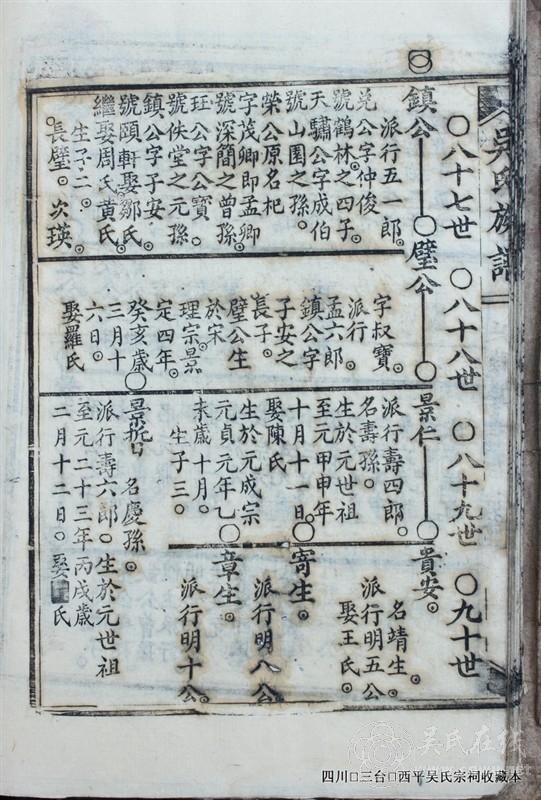 吳氏族譜
〇八十七世 〇八十八世 〇八十九世 〇九十世
鎮公
派行五一郎。
兌公字仲俊
號鶴林之四子。
天驌公字成伯
號山園之孫。
榮公原名杞
字茂卿即孟卿
號深簡之曾孫。
珏公字公寶。
號佚堂之元孫
鎮公字子安
號頤軒娶鄒氏。
繼娶周氏黃氏。
生子二。
長璧。次瑛。
〇璧公
字叔寶。
派行
孟六郎
鎮公字
子安之
長子。
璧公生
於宋
理宗景
定四年。
癸亥歲
三月十
六日。
娶羅氏
〇景仁
派行壽四郎。
名壽孫。
生於元世祖
至元甲申年
十月十一日。
娶陳氏
生於元成宗
元貞元年乙
未歲十月。
生子三。
〇景哲 名慶孫。
派行壽六郎。生於元世祖
至元二十三年丙戌歲
二月十二日。娶 氏
〇貴安。
名靖生。
派行明五公
娶王氏。
〇寄生。
派行明八公
〇章生。
派行明十公。
吴氏在线
四川□三台□西平吴氏宗祠收藏本